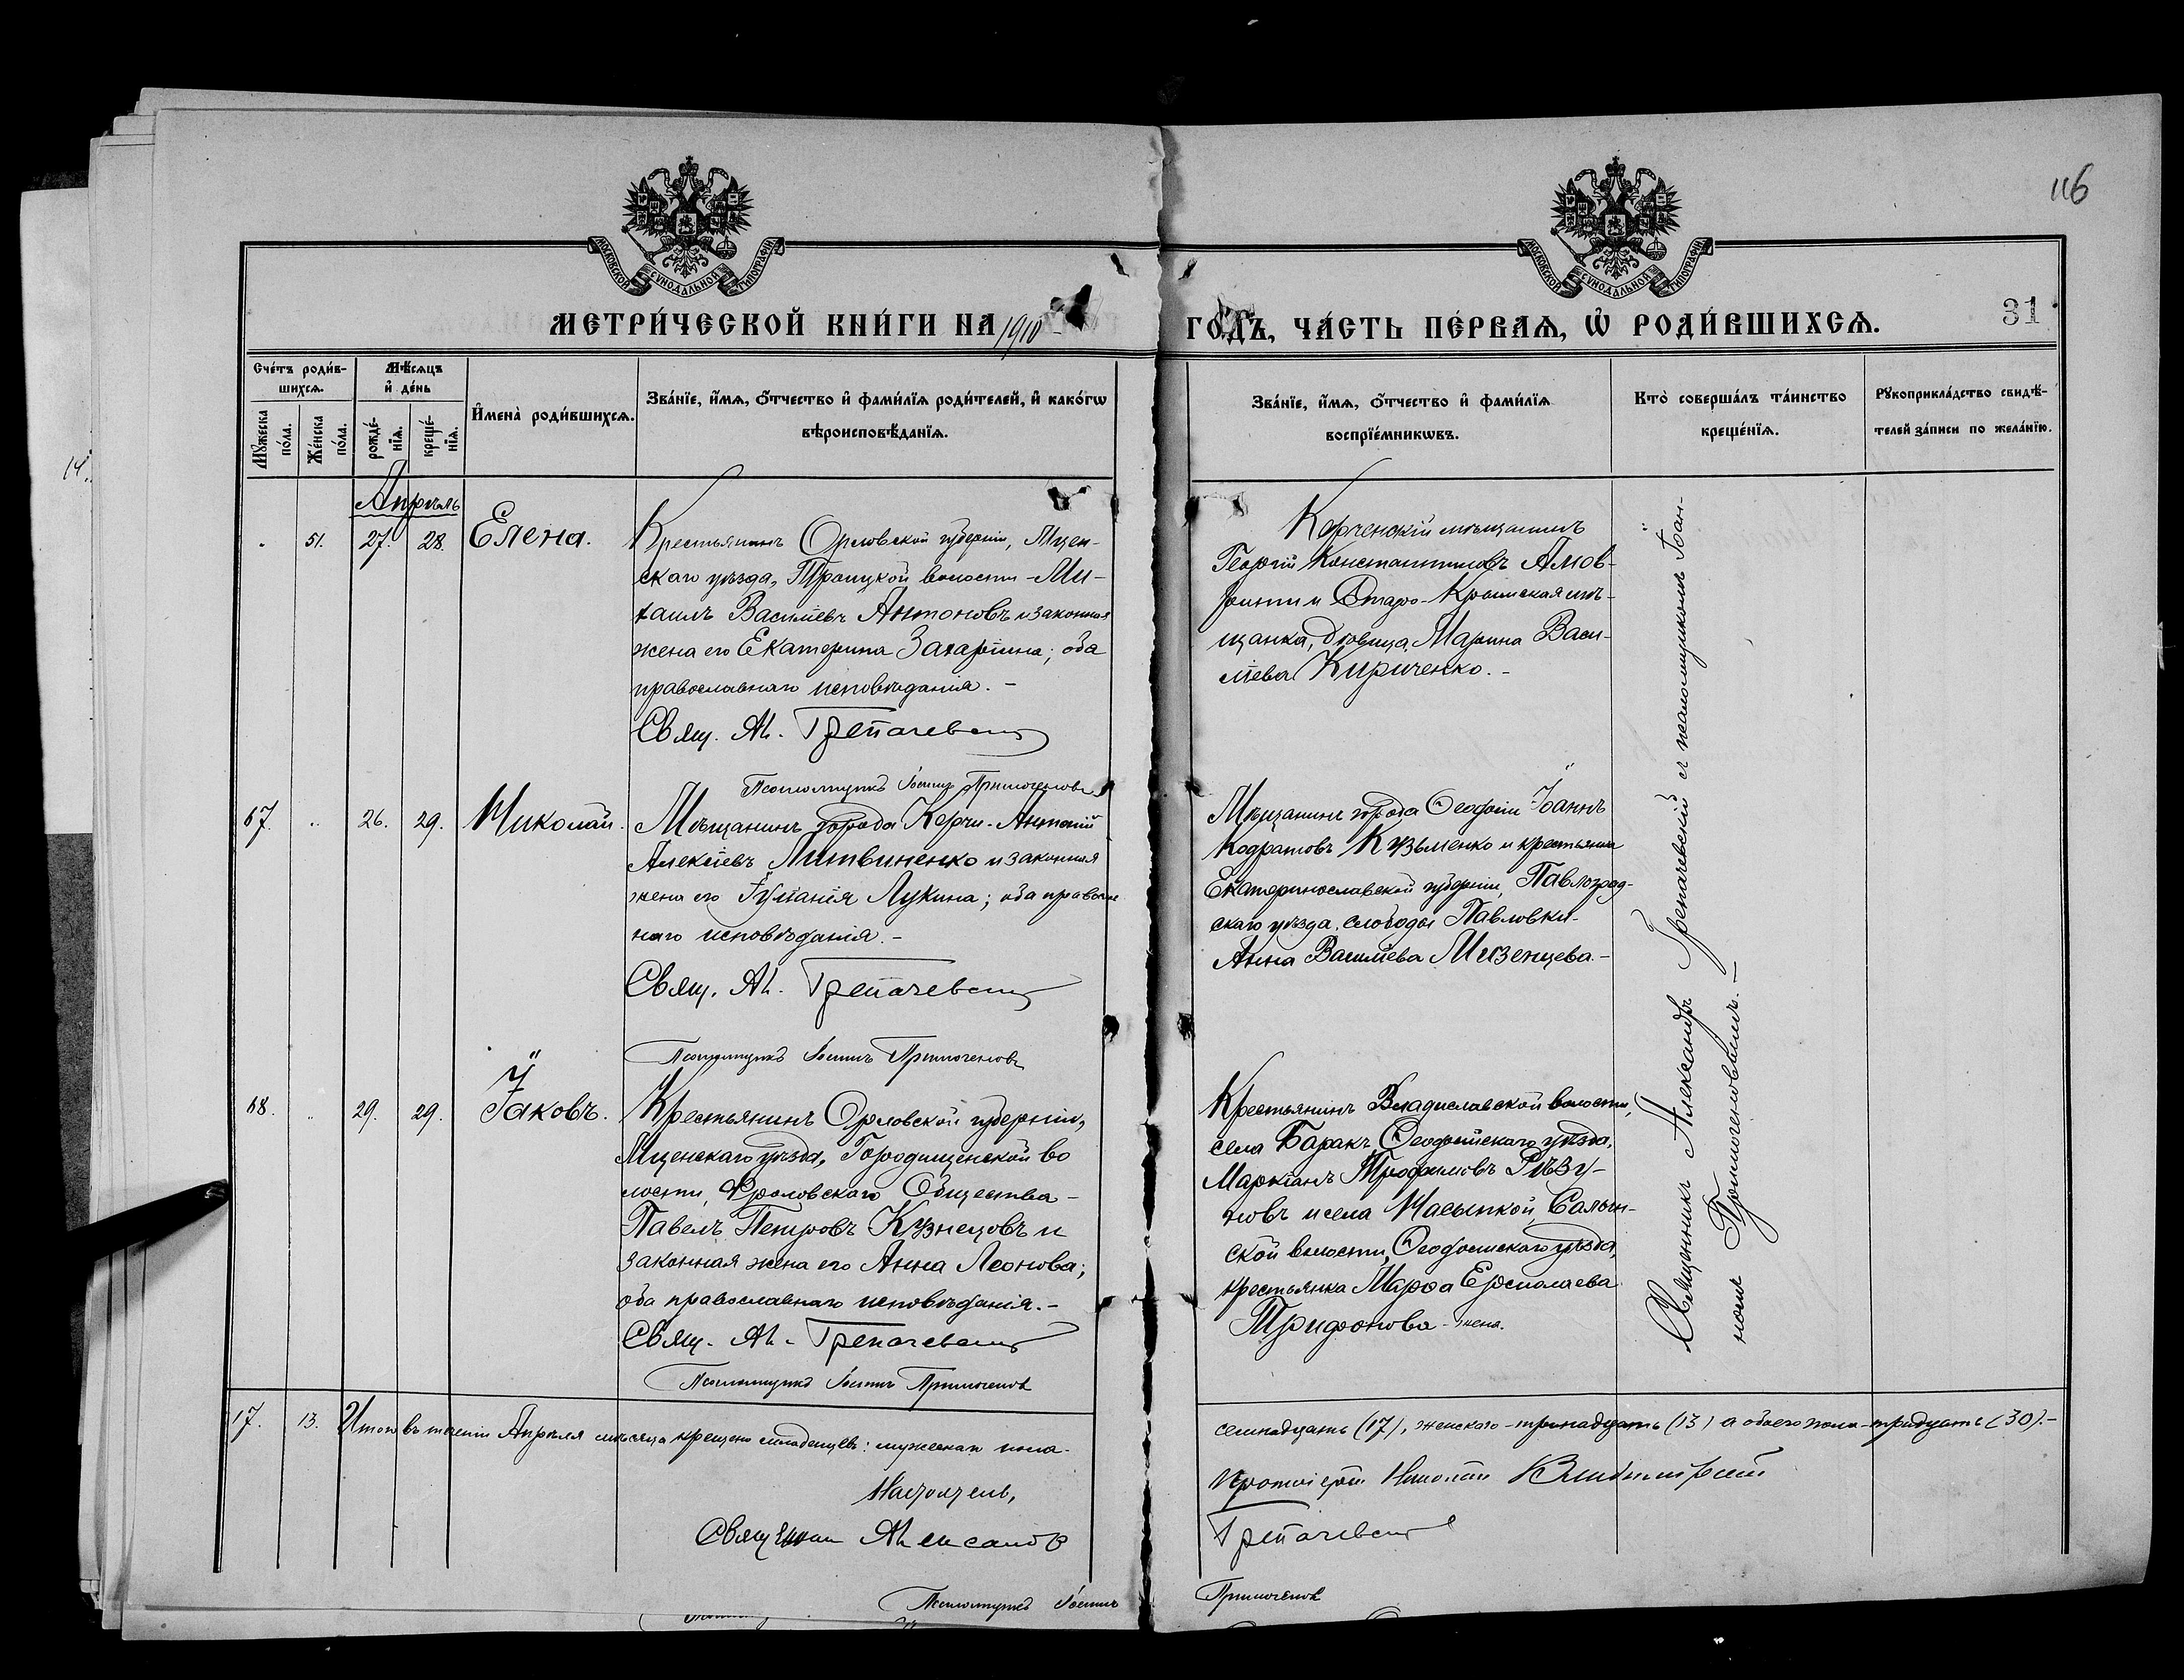 116
МОСКОВСКОЙ СѴНОДАЛЬНОЙ ТИПОГРАФІИ
МОСКОВСКОЙ СѴНОДАЛЬНОЙ ТИПОГРАФІИ
МЕТРИ́ЧЕСКОЙ КНИ́ГИ НА 1910
ГОДЪ, ЧА́СТЬ ПЕ́РВАѦ, Ѡ РОДИ́ВШИХСѦ.
31
Сче́тъ роди́в-
шихсѧ.
Мꙋ́жеска
по́ла.
Же́нска
по́ла.
Мѣ́сѧцъ
и҆ де́нь
рожде́-
нїѧ.
креще́-
нїѧ.
И҆мена̀ роди́вшихсѧ.
Зва́нїе, и҆́мѧ, ѻ҆́тчество и҆ фами́лїѧ роди́телей, и҆ како́гѡ
вѣроисповѣ́данїѧ.
Зва́нїе, и҆́мѧ, ѻ҆́тчество и҆ фами́лїѧ
воспрїе́мникѡвъ.
Кто̀ соверша́лъ та́инство
креще́нїѧ.
Рꙋкоприкла́дство свидѣ́-
телей за́писи по жела́нїю.
Апрѣль
51. 27. 28. Елена.
Крестьянинъ Орловской губерніи, Мцен-
скаго уѣзда, Троицкой волости - Ми-
хаилъ Васильевъ Антоновъ и законная
жена его Екатерина Захаріина; оба
православнаго исповѣданія. -
Свящ. Ал. Трепачевскій
Псаломщикъ Іоаннъ Примоченовъ
Керченскій мѣщанинъ
Георгій Константиновъ
и Старо-Крымская мѣ-
щанка, дѣвица, Марина Васи-
льева Кириченко. -
67. 26. 29. Николай.
Мѣщанинъ города Керчи - Антоній
Алексѣевъ Литвиненко и законная
жена его Іуліанія Лукина; оба православ
наго исповѣданія. -
Свящ. Ал. Трепачевскій
Псаломщикъ Іоаннъ Примоченовъ
Мѣщанинъ города Ѳеодосіи Іоаннъ
Кодратовъ Кузьменко и крестьянка
Екатеринославской губерніи, Павлоград-
скаго уѣзда, слободы Павловки -
Анна Васильева Мизенцева. -
68. 29. 29. Іаковъ.
Крестьянинъ Орловской губерніи,
Мценскаго уѣзда, Городищенской во
лости, Фроловскаго Общества -
Павелъ Петровъ Кузнецовъ и
законная жена его Анна Леонова;
оба православнаго исповѣданія. -
Свящ. Ал. Трепачевскій
Псаломщикъ Іоаннъ Примоченовъ
Крестьянинъ Владиславской волости,
села Баракъ Ѳеодосійскаго уѣзда,
Маркіанъ Трофимовъ Рѣзу-
новъ и села Насыпкой, Салын-
ской волости, Ѳеодосійскаго уѣзда,
крестьянка Марѳа Ермолаева
Трифонова - жена.
Священникъ Александръ Трепачевскій съ псаломщикомъ Іоан-
номъ Примоченовымъ. -
17. 13. Итого въ теченіи Апрѣля мѣсяца крещено младенцевъ: мужескаго пола -
семнадцать (17), женскаго - тринадцать (13) а обоего пола - тридцать (30). -
Настоятель,
Протоіерей Николай Владимірскій
Священникъ Александръ
Трепачевскій
Псаломщикъ Іоаннъ
Примоченовъ